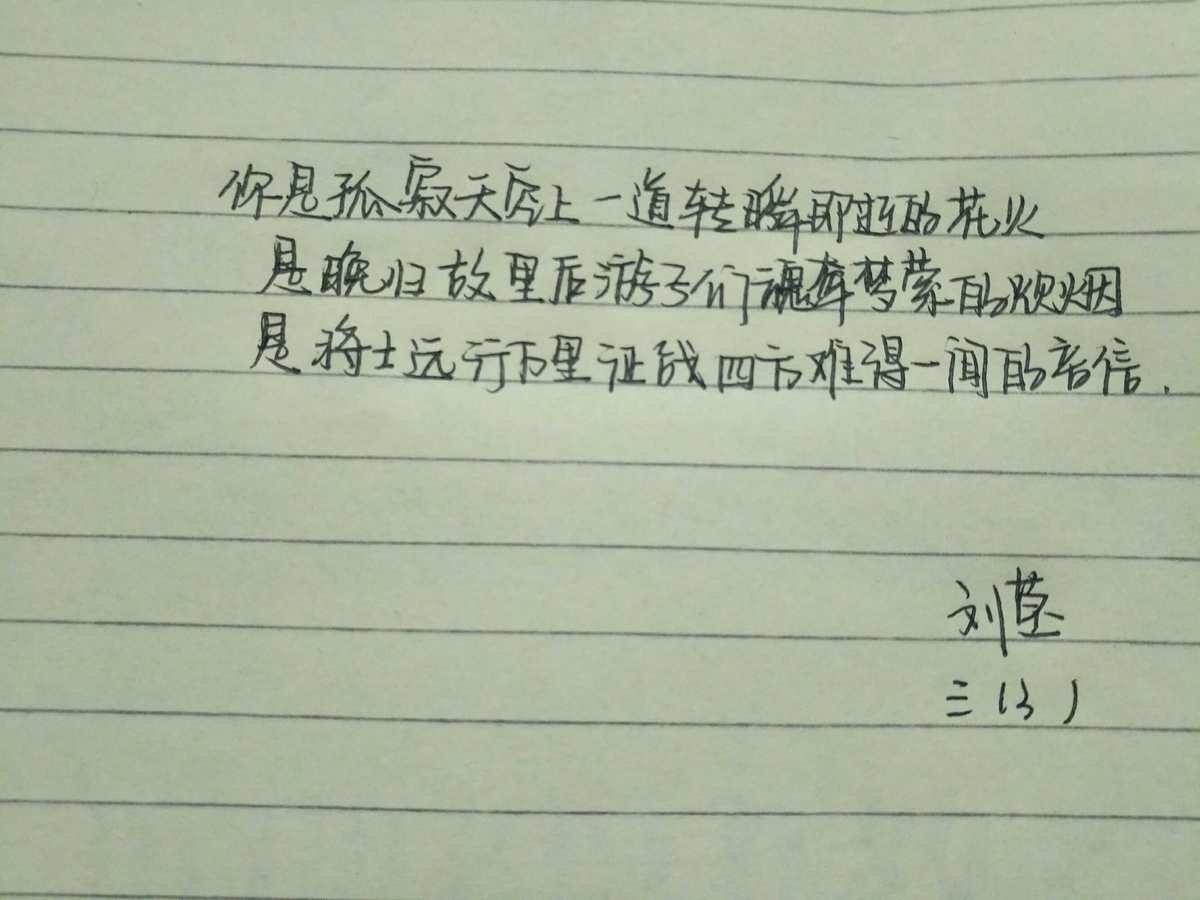 你是孤寂天空上一道转瞬即逝的花火
是晚归故里后游子们魂牵梦萦的炊烟
是将士远行万里证战四方难得一闻的音信.
刘茎
三(3)